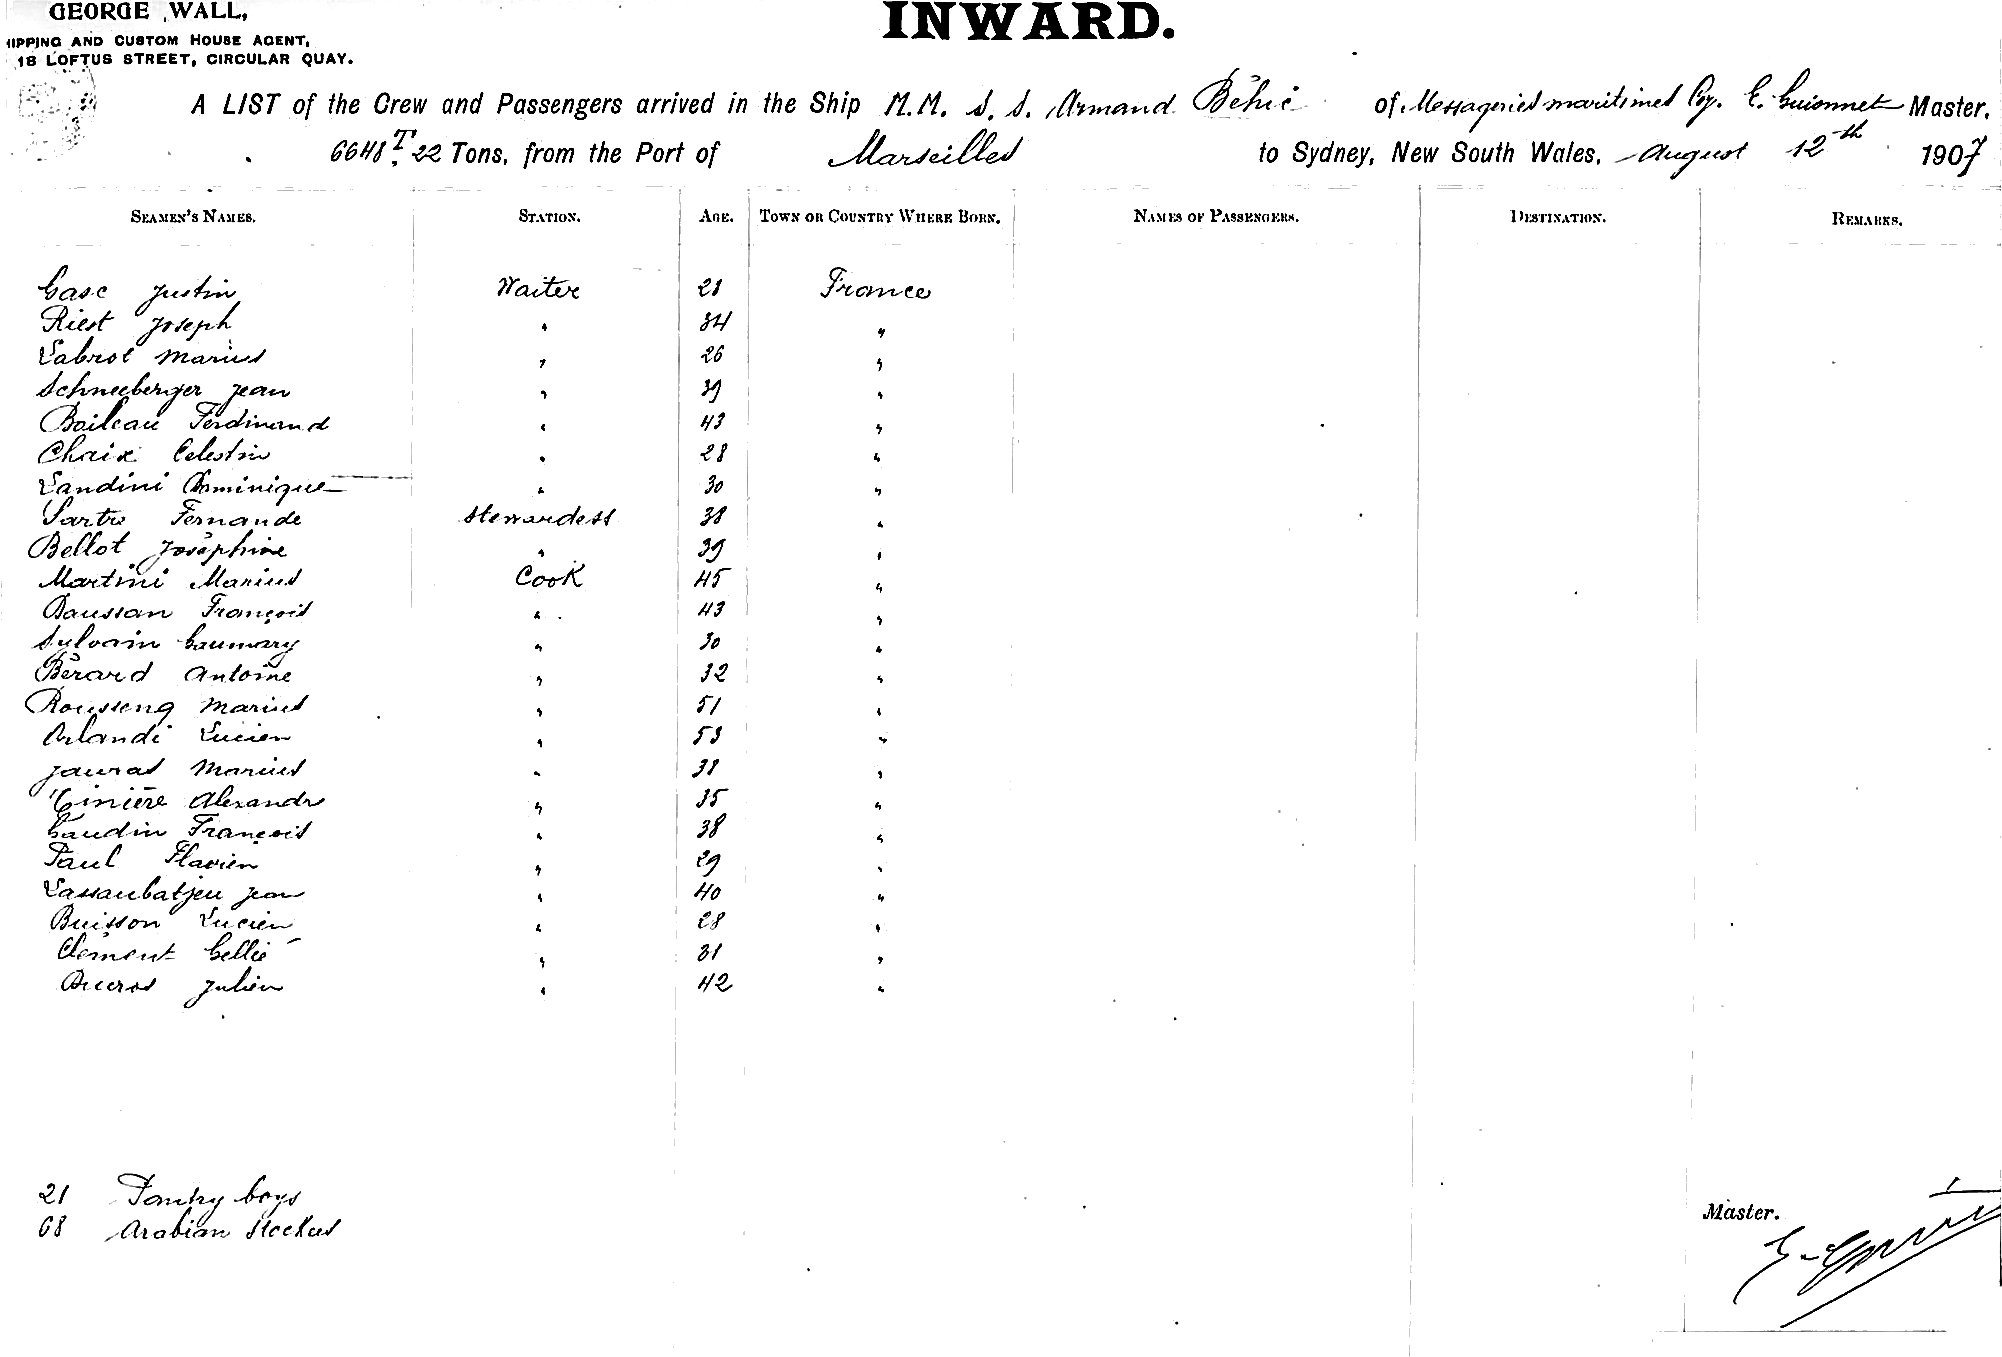 GEORGE WALL,
HIPPING AND CUSTOM HOUSE AGENT,
18 LOFTUS STREET, CIRCULAR QUAY.
INWARD.
A LIST of the Crew and Passengers arrived in the Ship M.M. S.S. Armand Béhic of Messageries maritimes Coy. E. Guionnet Master,
6648 T. 22 Tons, from the Port of Marseilles to Sydney, New South Wales, August 12th 1907
SEAMEN'S NAMES. STATION. AGE. TOWN OR COUNTRY WHERE BORN. NAMES OF PASSENGERS. DESTINATION. REMARKS.
Gasc Justin Waiter 21 France
Riest Joseph " 34 "
Labrot Marius " 26 "
Schneeberger Jean " 39 "
Boileau Ferdinand " 43 "
Chaix Celestin " 28 "
Landini Dominique " 30 "
Sartre Fernande Stewardess 38 "
Bellot Joséphine " 39 "
Martini Marius Cook 45 "
Baussan François " 43 "
Sylvain Gaumary " 30 "
Bérard Antoine " 32 "
Rousseng Marius " 51 "
Orlandi Lucien " 53 "
Jauras Marius " 31 "
Ginière Alexandre " 35 "
Gaudin François " 38 "
Paul Flavien " 29 "
Lassaubatjeu Jean " 40 "
Buisson Lucien " 28 "
Clément Gellié " 31 "
Ducros Julien " 42 "
21 Pantry boys
68 Arabian Stockers
Master.